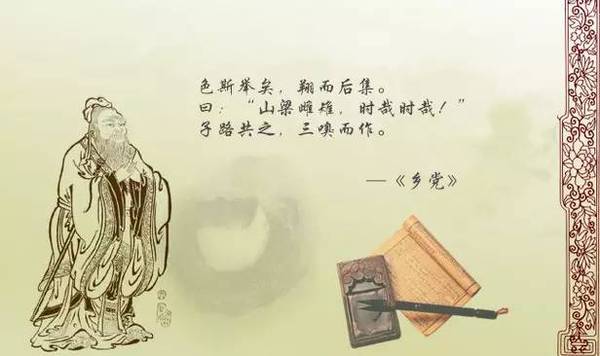 色斯举矣，翔而后集。
曰：“山梁雌雉，时哉时哉！”
子路共之，三嗅而作。
—《乡党》